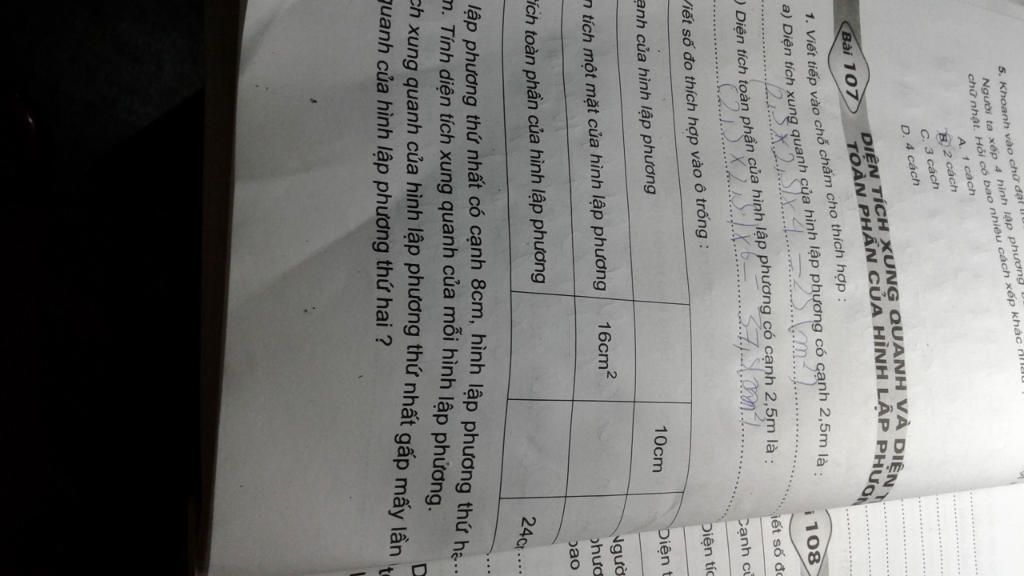 5. Khoanh vào chữ đặt
Người ta xếp 4 hình lập phương
chữ nhật. Hỏi có bao nhiêu cách xếp khác nhau
A. 1 cách
B. 2 cách
C. 3 cách
D. 4 cách
Bài 107
DIỆN TÍCH XUNG QUANH VÀ DIỆN
TOÀN PHẦN CỦA HÌNH LẬP PHƯƠ
1. Viết tiếp vào chỗ chấm cho thích hợp :
a) Diện tích xung quanh của hình lập phương có cạnh 2,5m là :
(2,5 x 2,5) x 4 = 25 (m2)
) Diện tích toàn phần của hình lập phương có cạnh 2,5m là :
(2,5 x 2,5) x 6 = 37,5
Viết số đo thích hợp vào ô trống :
ạnh của hình lập phương
10cm
n tích một mặt của hình lập phương
16cm²
ích toàn phần của hình lập phương
24
lập phương thứ nhất có cạnh 8cm, hình lập phương thứ
m. Tính diện tích xung quanh của mỗi hình lập phương.
ch xung quanh của hình lập phương thứ nhất gấp mấy lần
quanh của hình lập phương thứ hai ?
108
iết số đo
Cạnh
Diện
Diện
Người
bao